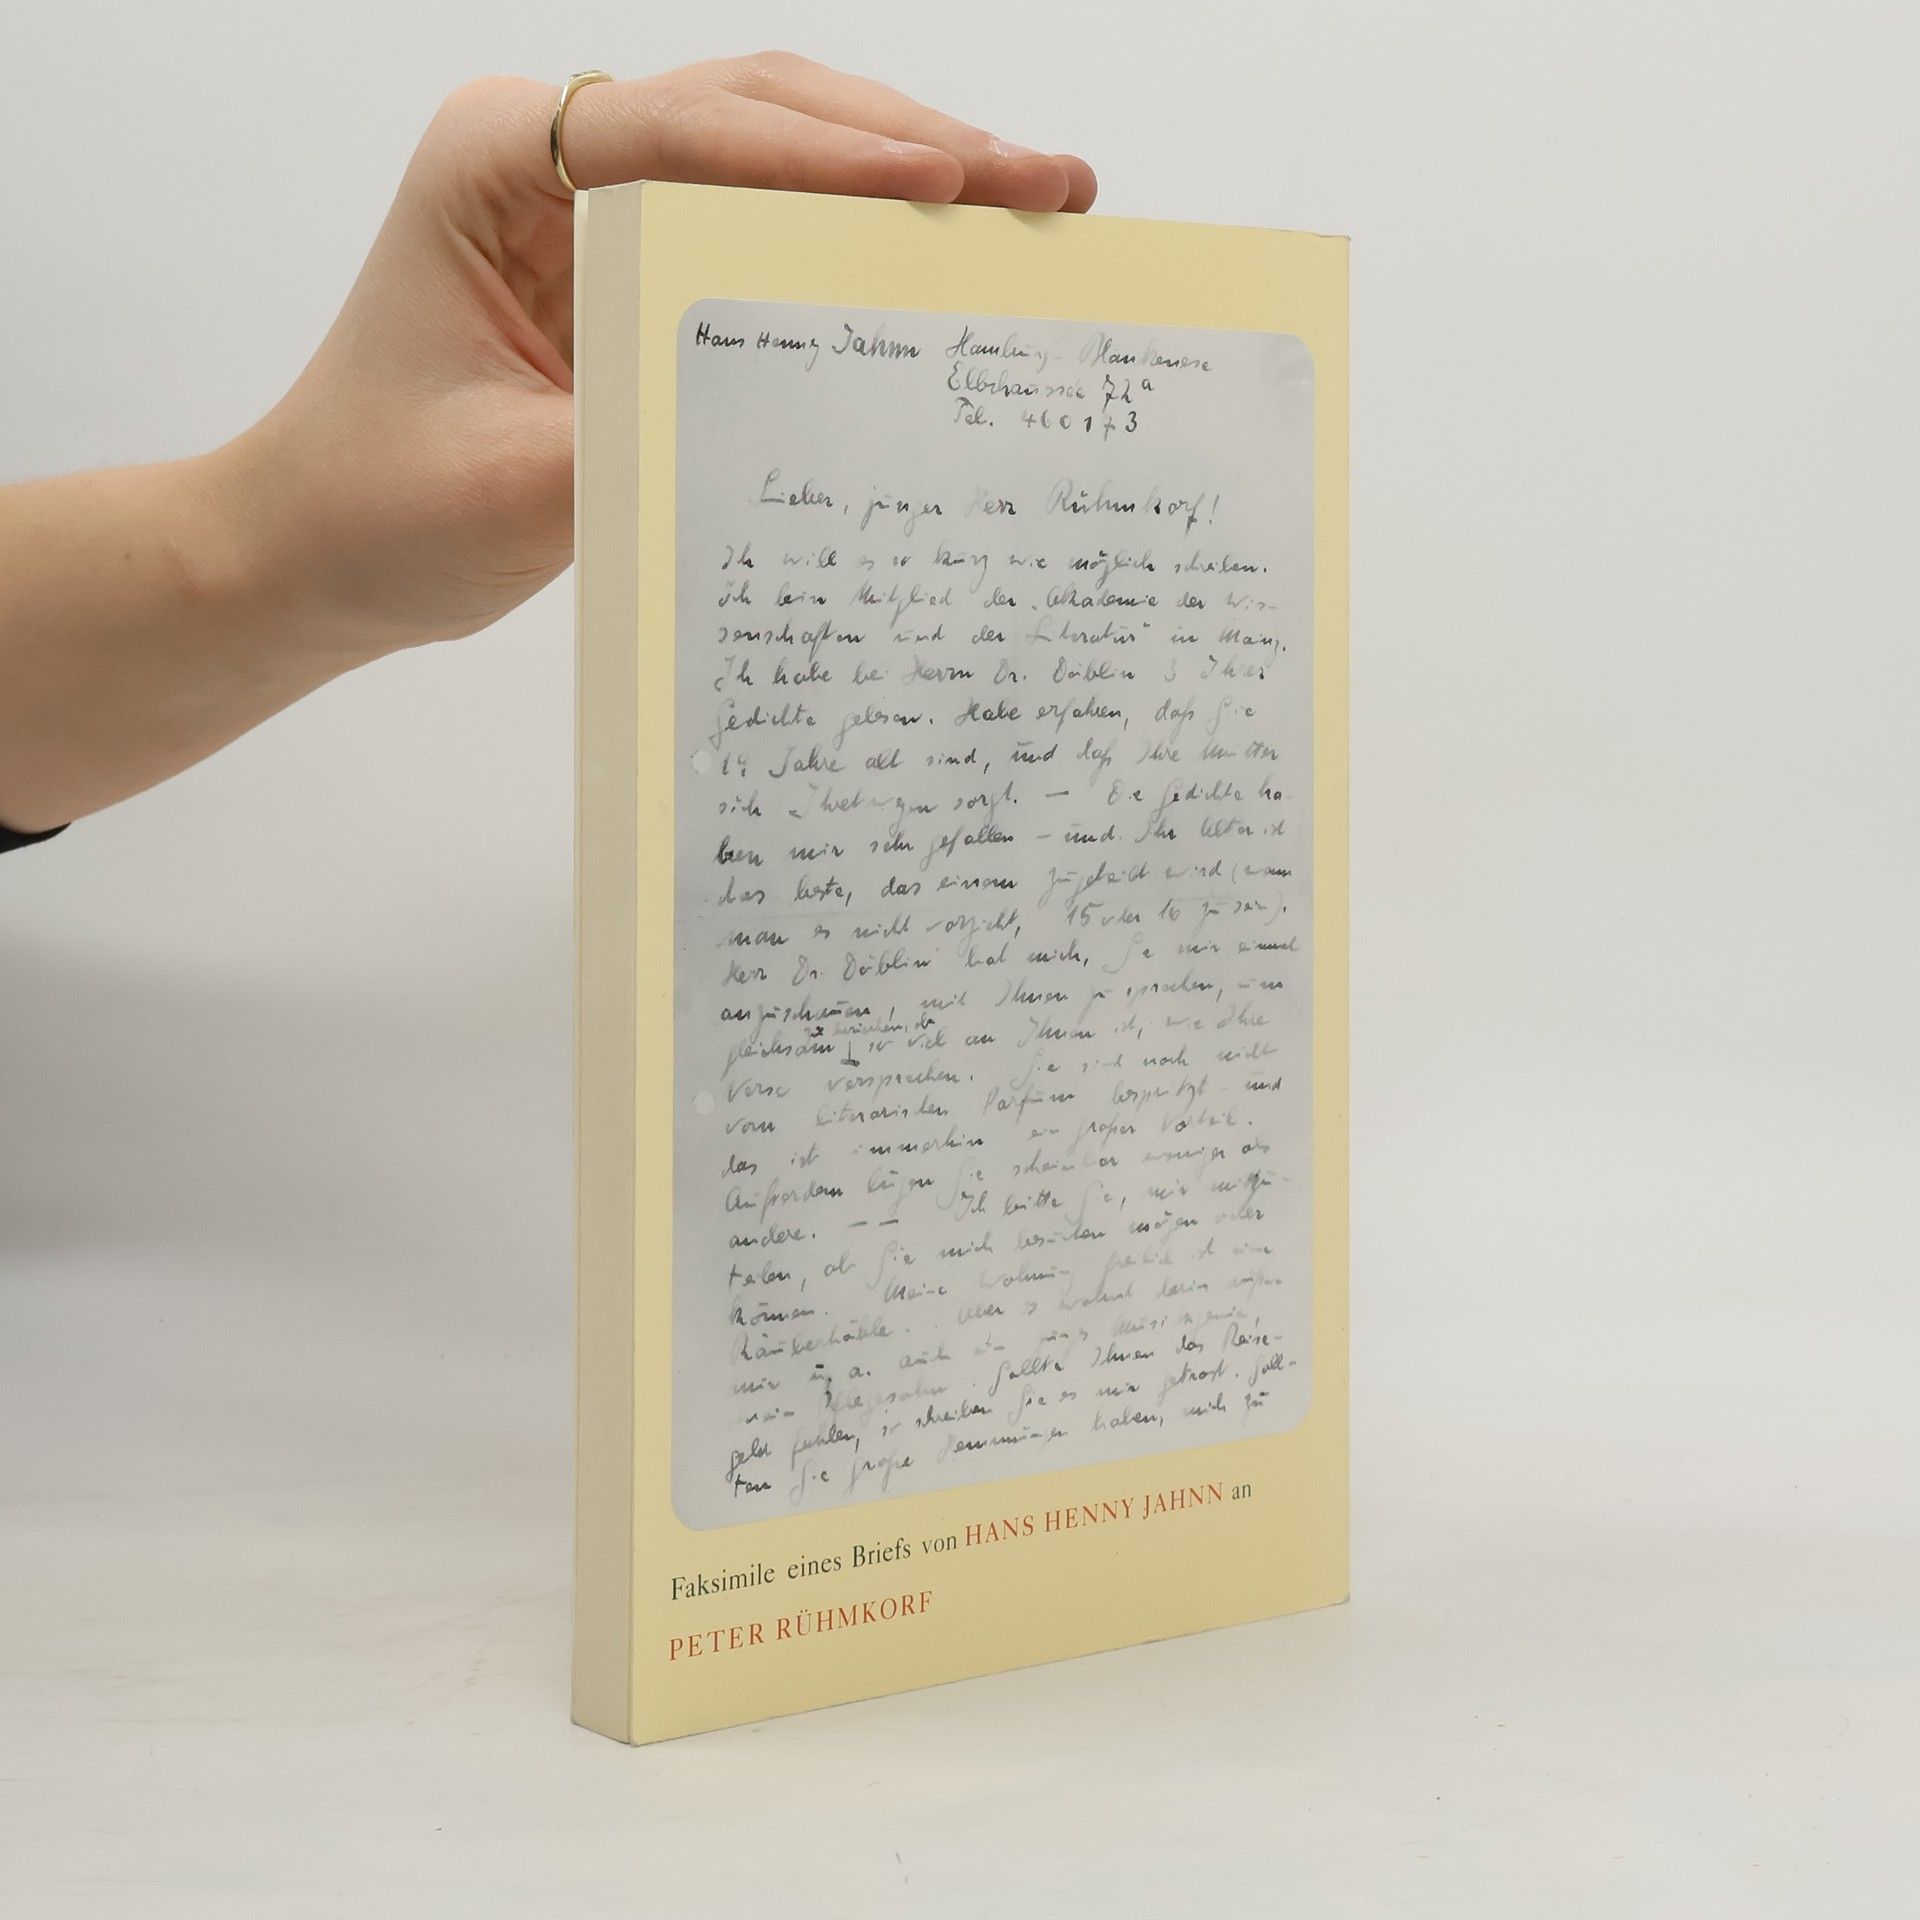 Hans Henny Jahnn Hamburg-Blankenese
Elbchaussee 72a
Tel. 460173
Lieber, junger Herr Rühmkorf!
Ich will es so kurz wie möglich schreiben.
Ich bin Mitglied der "Akademie der Wis-
senschaften und der Literatur" in Mainz.
Ich habe bei Herrn Dr. Döblin 3 Ihrer
Gedichte gelesen. Habe erfahren, daß Sie
19 Jahre alt sind, und daß Ihre Mutter
sich Ihretwegen sorgt. — Die Gedichte ha-
ben mir sehr gefallen – und Ihr Alter ist
das beste, das einem zugeteilt wird (wenn
man es nicht vorzieht, 15 oder 16 zu sein).
Herr Dr. Döblin bat mich, Sie mir einmal
anzuschauen, mit Ihnen zu sprechen, um
gleichsam zu erkunden, ob so viel an Ihnen ist, wie Ihre
Verse versprechen. Sie sind noch nicht
vom literarischen Parfum bespritzt – und
das ist immerhin ein großer Vorteil.
Außerdem lügen Sie scheinbar weniger als
andere. — — Ich bitte Sie, mir mitzu-
teilen, ob Sie mich besuchen mögen oder
können. Meine Wohnung freilich ist eine
Räuberhöhle. Aber es wohnt darin außer
mir u. a. auch ein junges Musikgenie,
mein Pflegesohn. Sollte Ihnen das Reise-
geld fehlen, so schreiben Sie es mir getrost. Soll-
ten Sie große Hemmungen haben, mich zu
Faksimile eines Briefs von HANS HENNY JAHNN an
PETER RÜHMKORF